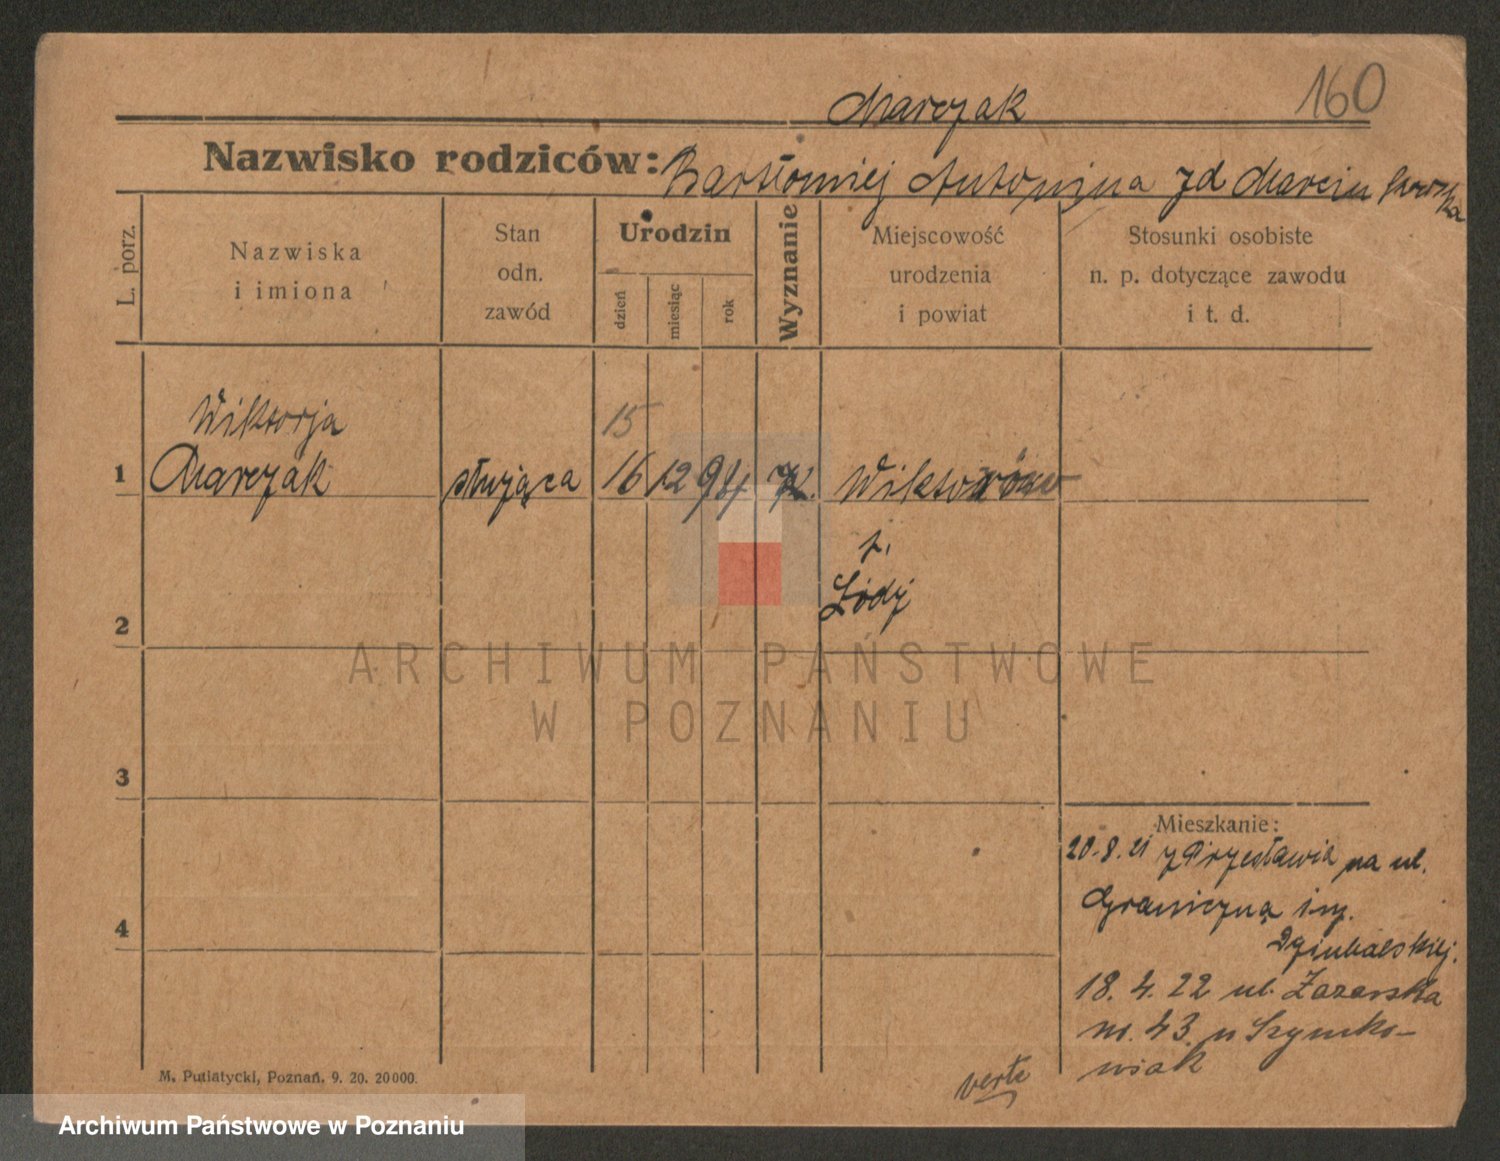 160
Marczak
Nazwisko rodziców: Bartłomiej Antonina zd Marcinkowska
L. porz.
Nazwiska
i imiona
Stan
odn.
zawód
Urodzin
dzień
miesiąc
rok
Wyznanie
Miejscowość
urodzenia
i powiat
Stosunki osobiste
n. p. dotyczące zawodu
i t. d.
Wiktorja
15
1 Marczak służąca 16 12 94 K. Wiktorów
p.
Łódź
2
3
4
Mieszkanie:
20.8.21 z Przesławia na ul.
Graniczną
Dziubalskiej.
18. 4. 22 ul. Łazarska
no. 43. u Szymko-
wiak
verte
M. Putiatycki, Poznań. 9. 20. 20000.
ARCHIWUM PAŃSTWOWE
W POZNANIU
Archiwum Państwowe w Poznaniu